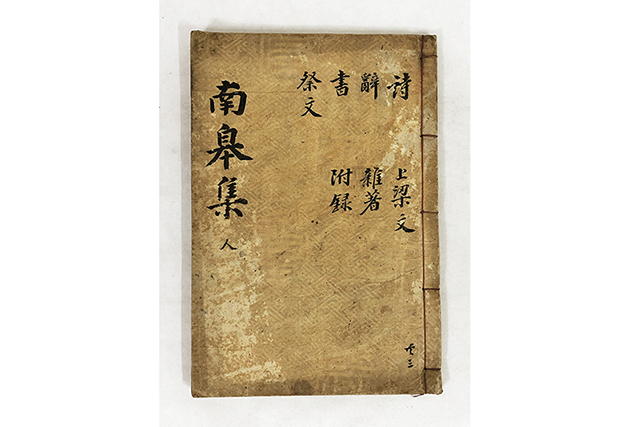 詩 上梁文
辭 雜著
書 附録
祭文
南皐集 人
共三